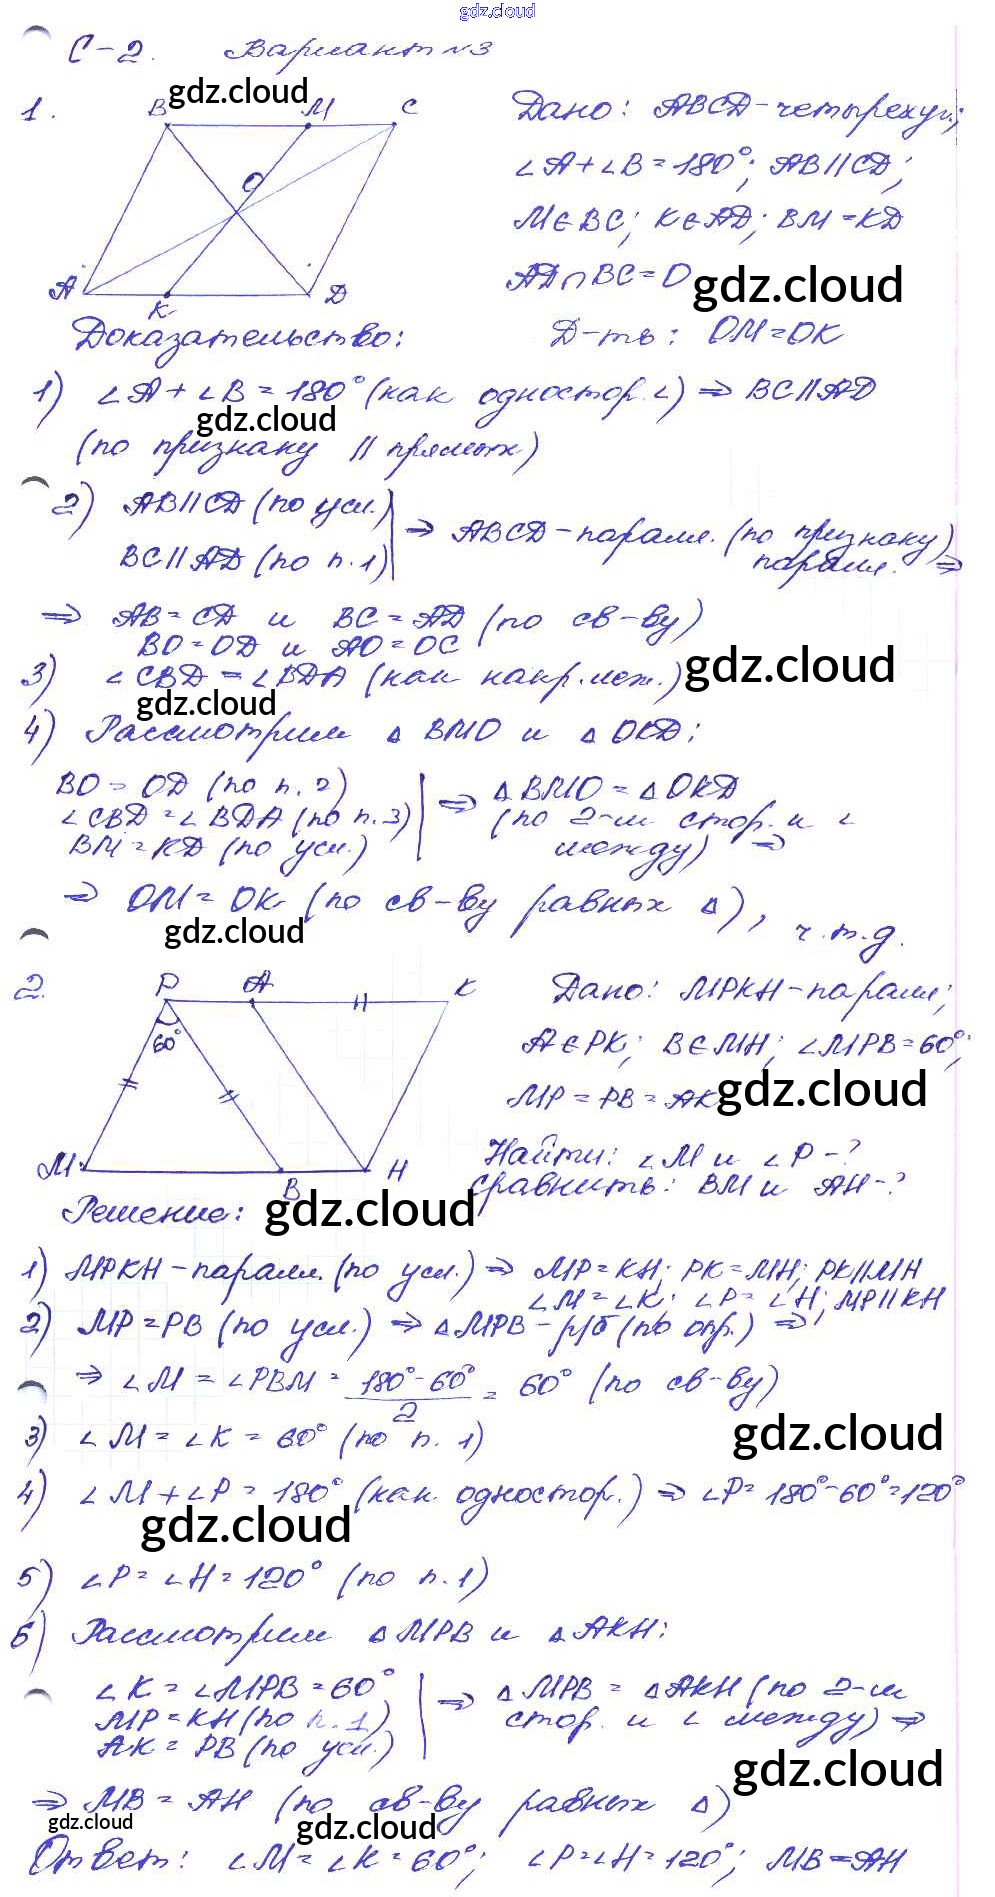 gdz.cloud
С-2. Вариант №3
gdz.cloud
1.
B M C
O
A K D
Дано: ABCD-четырехуг.;
∠A+∠B=180°; AB||CD;
M∈BC; K∈AD; BM=KD
AD∩BC=O
gdz.cloud
Д-ть: OM=OK
Доказательство:
1) ∠A+∠B=180° (как одностор.∠) ⇒ BC||AD
gdz.cloud
(по признаку || прямых)
2) AB||CD (по усл.)
BC||AD (по п.1)
⇒ ABCD-паралл. (по признаку)
паралл. ⇒
⇒ AB=CD и BC=AD (по св-ву)
BO=OD и AO=OC
3) ∠CBD=∠BDA (как накр.леж.)
gdz.cloud
gdz.cloud
4) Рассмотрим △BMO и △OKD:
BO=OD (по п.2)
∠CBD=∠BDA (по п.3)
BM=KD (по усл.)
⇒ △BMO=△OKD
(по 2-м стор. и ∠
между) ⇒
⇒ OM=OK (по св-ву равных △),
ч.т.д.
gdz.cloud
2.
P A K
60°
M B H
Дано: MPKH-паралл;
A∈PK; B∈MH; ∠MPB=60°;
MP=PB=AK
gdz.cloud
Найти: ∠M и ∠P-?
сравнить: BM и AH-?
gdz.cloud
Решение:
1) MPKH-паралл. (по усл.) ⇒ MP=KH; PK=MH; PK||MH
∠M=∠K; ∠P=∠H; MP||KH
2) MP=PB (по усл.) ⇒ △MPB-р/б (по опр.) ⇒
⇒ ∠M=∠PBM=(180°-60°)/2=60° (по св-ву)
3) ∠M=∠K=60° (по п.1)
gdz.cloud
4) ∠M+∠P=180° (как одностор.) ⇒ ∠P=180°-60°=120°
gdz.cloud
5) ∠P=∠H=120° (по п.1)
6) Рассмотрим △MPB и △AKH:
∠K=∠MPB=60°
MP=KH (по п.1)
AK=PB (по усл.)
⇒ △MPB=△AKH (по 2-м
стор. и ∠ между) ⇒
gdz.cloud
⇒ MB=AH (по св-ву равных △)
gdz.cloud
gdz.cloud
Ответ: ∠M=∠K=60°; ∠P=∠H=120°; MB=AH